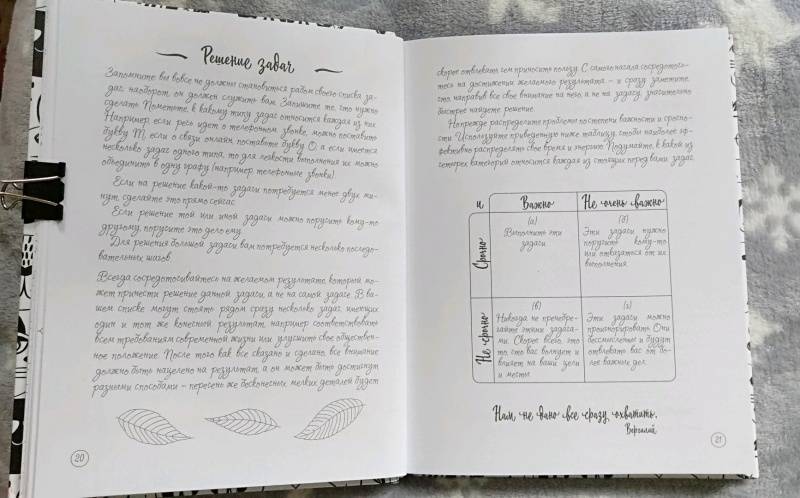 Решение задач
Запомните вы вовсе не должны становиться рабом своего списка за-
дач. наоборот он должен служить вам. Запишите то, что нужно
сделать. Пометьте, к какому типу задач относится каждая из них.
Например если речь идет о телефонном звонке, можно поставить
букву Т, если о связи онлайн, поставьте букву О, а если имеется
несколько задач одного типа, то для легкости выполнения их можно
объединить в одну графу (например телефонные звонки).
Если на решение какой-то задачи потребуется менее двух ми-
нут, сделайте это прямо сейчас.
Если решение той или иной задачи можно поручить кому-то
другому, поручите это дело ему.
Для решения большой задачи вам потребуется несколько последо-
вательных шагов.
Всегда сосредотачивайтесь на желаемом результате который мо-
жет принести решение данной задачи, а не на самой задаче. В ва-
шем списке могут стоять рядом сразу несколько задач имеющих
один и тот же конечный результат, например соответствовать
всем требованиям современной жизни или улучшить свое обществен-
ное положение. После того как все сказано и сделано, все внимание
должно быть нацелено на результат, а он может быть достигнут
разными способами – перечень же бесконечных мелких деталей будет
20
скорее отвлекать чем приносить пользу. С самого начала сосредоточь-
тесь на достижении желаемого результата – и сразу заметите,
что, направив все свое внимание на него, а не на задачу, значительно
быстрее найдете решение.
Но прежде распределите проблемы по степени важности и срочно-
сти. Используйте приведенную ниже таблицу, чтобы наиболее эф-
фективно распределять свое время и энергию. Подумайте, к какой из
четырех категорий относится каждая из стоящих перед вами задач.
и Важно Не очень важно
Срочно
(а)
Выполните эти
задачи
(б)
Эти задачи нужно
поручить кому-то
или отказаться от их
выполнения
Не срочно
(в)
Никогда не пренебре-
гайте этими задача-
ми. Скорее всего, это
то, что вас волнует и
влияет на ваши цели
и мечты
(г)
Эти задачи можно
проигнорировать. Они
бессмысленны и будут
отвлекать вас от бо-
лее важных дел
Нам не дано все сразу охватить.
Вергилий
21